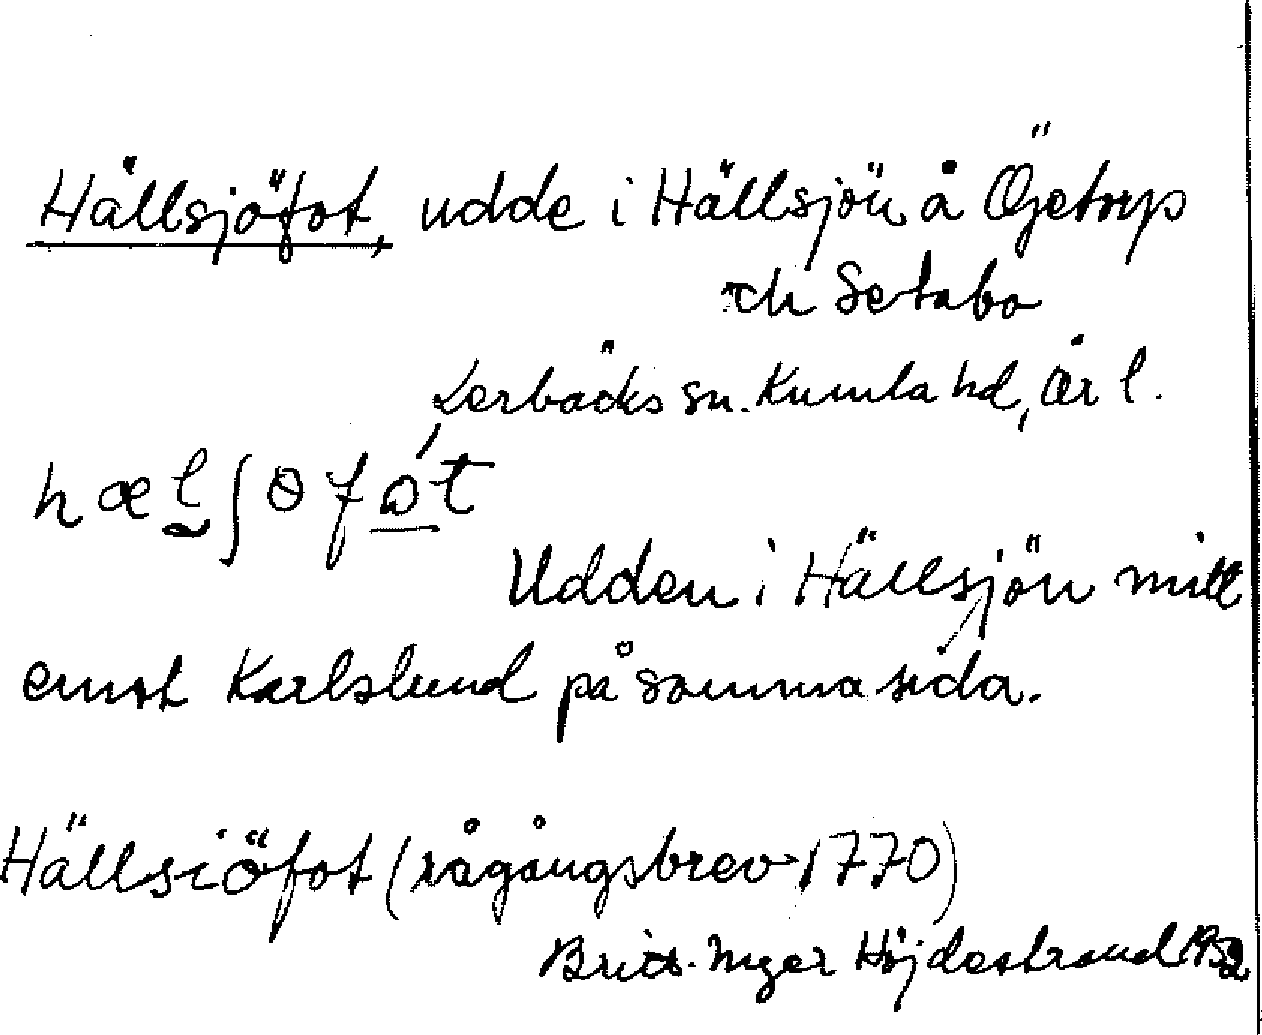 Hällsjöfot, udde i Hällsjön å Öjetorp
och Setabo
Lerbäcks sn. Kumla hd, Ör l.
hælʃɵfót
Udden i Hällsjön mitt
emot Karlslund på samma sida.
Hällsiöfot (rågångsbrev 1770)
Britt-Inger Höjdestrand 1952